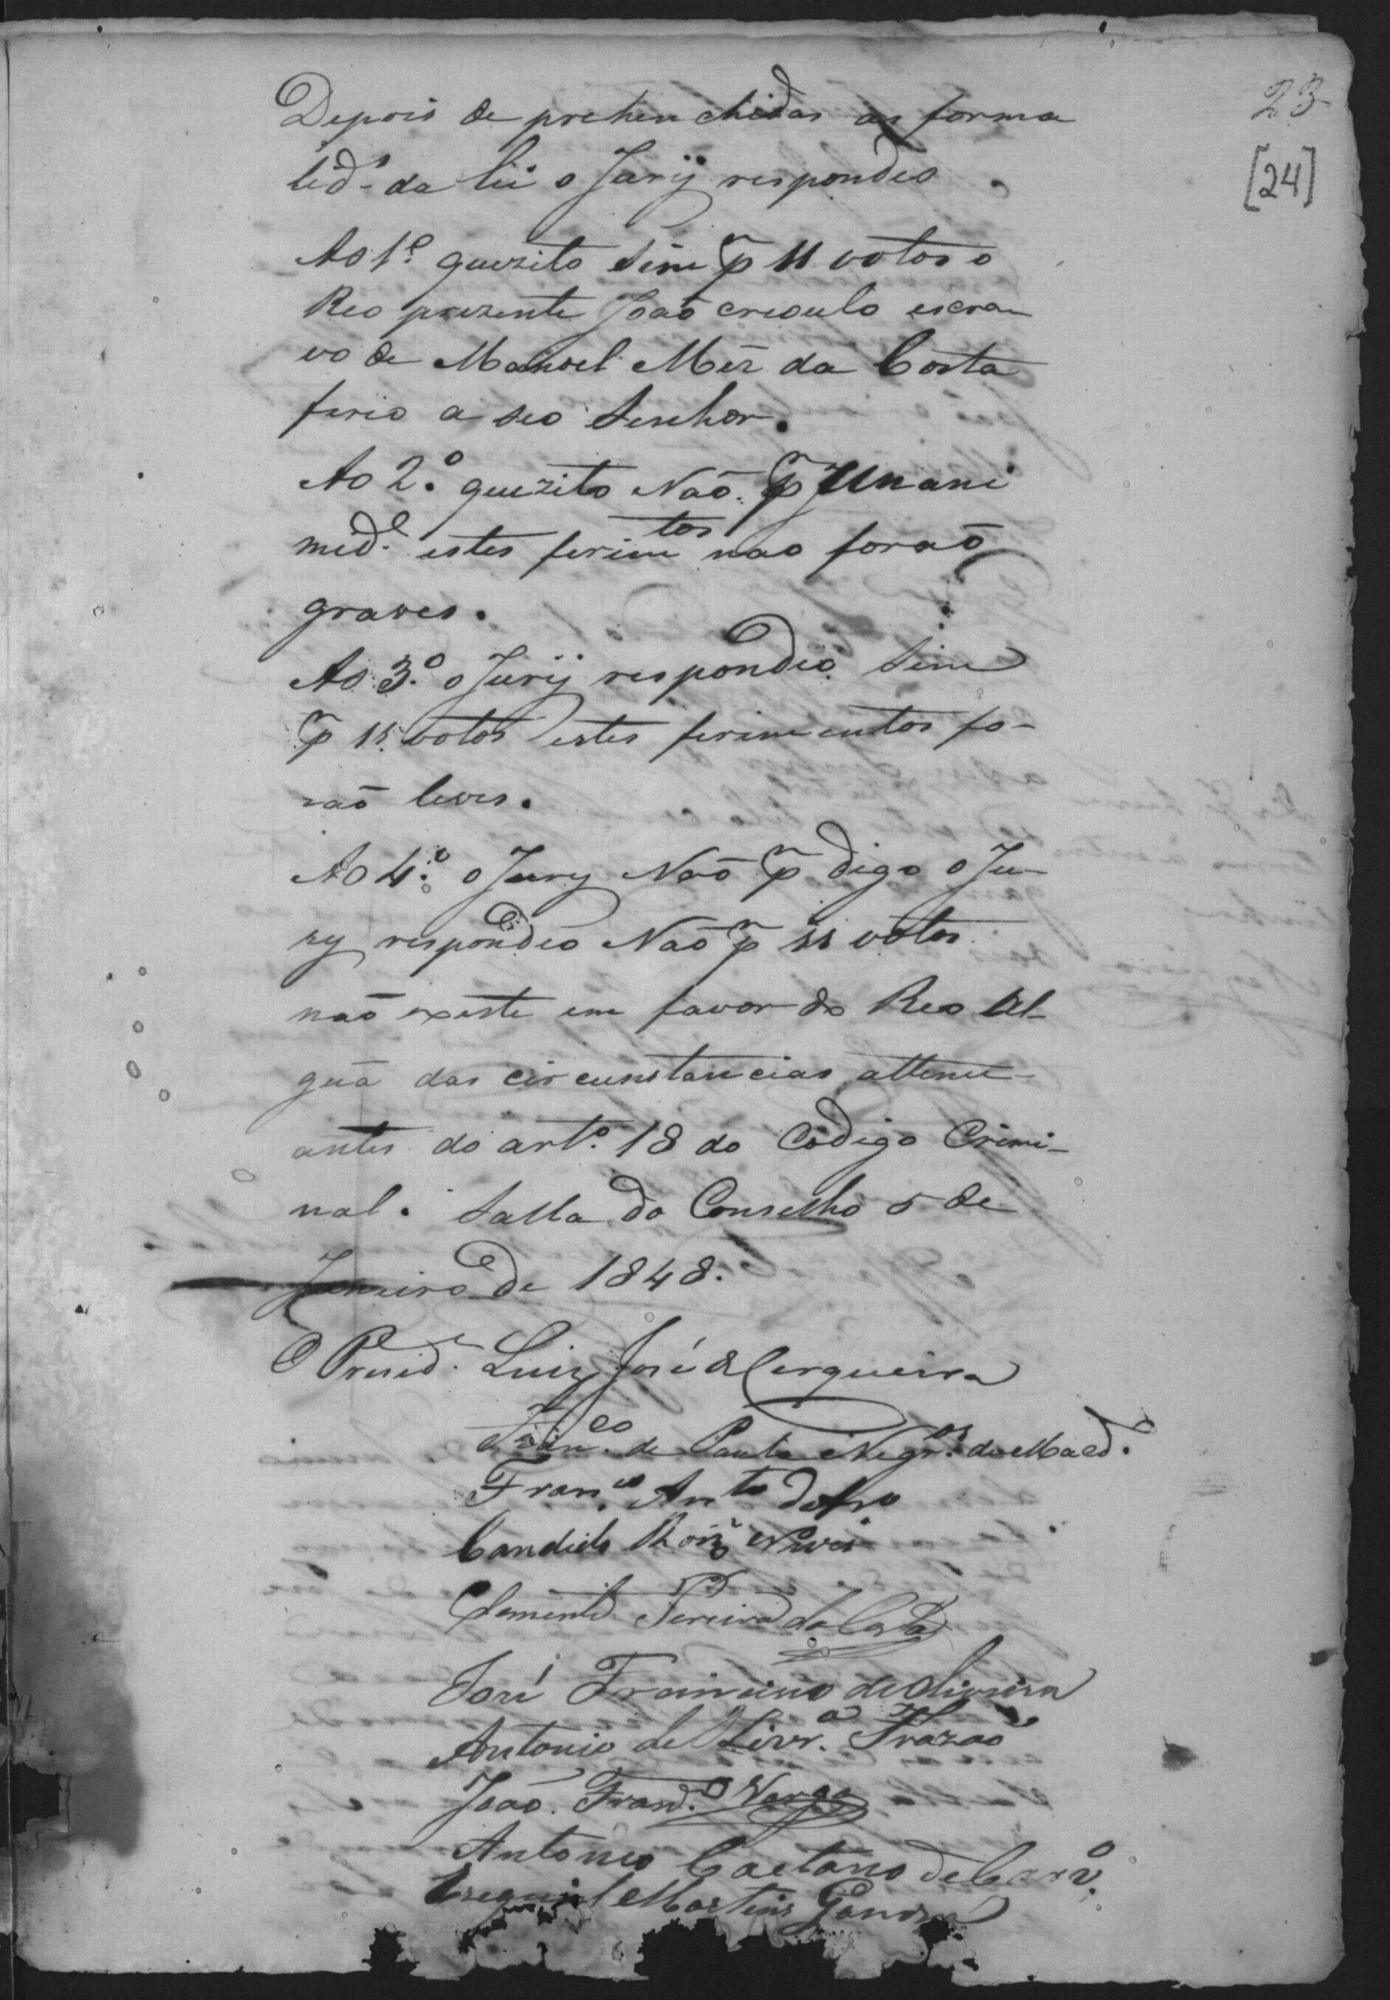 23
[24]
Depois de prehenchidas as forma
lid.s da lei o Jury respondeo
Ao 1.º quezito Sim p 11 votos o
Reo prezente João creoulo escra
vo de Manoel Mẽz da Costa
ferio a seo Senhor.
Ao 2.º quezito Não p Unani
mid.e estes ferimtos nao forão
graves.
Ao 3.º o Jury respondeo Sim
p 11 votos estes ferimentos fo-
rão leves.
Ao 4.º o Jury Não p digo o Ju-
ry respondeo Não p 11 votos
não existe em favor do Reo Al-
guã das circunstancias attenu-
antes do art.º 18 do Codigo Crimi-
nal. Salla do Conselho 5 de
Janeiro de 1848.
O Presid.e Luiz José de Cerqueira
Fran.co de Paula Negr.os de Maced.o
Fran.co Anto
Candido Roiz Neves
Clemente Pereira da Costa
José Francisco de Oliveira
Antonio de Olivr.a Frazaõ
João Franc.o Varga
Antonio Caetano de Carv.o
Ezequiel Martins Gandra